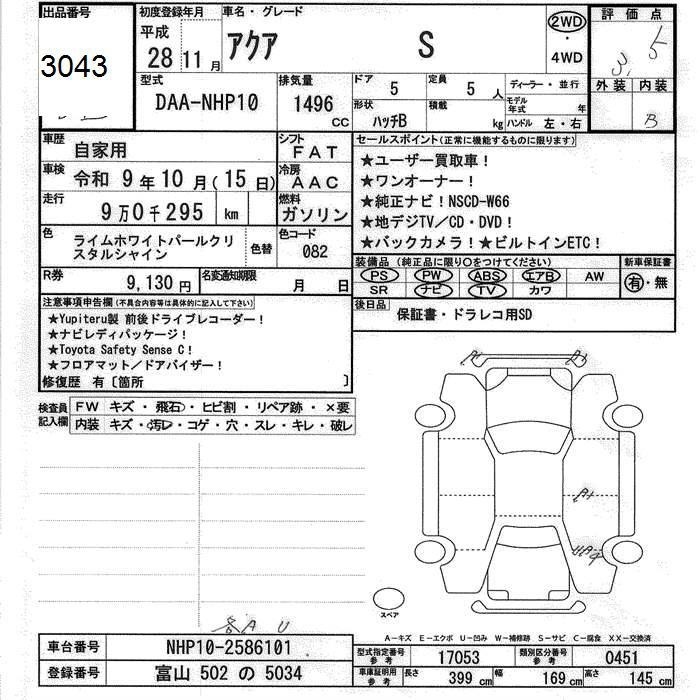 出品番号
3043
初度登録年月
平成
28 11 月
車名・グレード
アクア S
2WD
・
4WD
評価点
3.5
外装 内装
B
型式
DAA-NHP10
排気量
1496 CC
ドア 5
定員 5 人
形状 ハッチB
積載 kg
ディーラー・並行
モデル年式 年
ハンドル 左・右
車歴 自家用
シフト FAT
車検 令和 9 年 10 月 ( 15 日)
冷房 AAC
走行 9 万 0 千 295 km
燃料 ガソリン
色 ライムホワイトパールクリスタルシャイン
色替
色コード 082
R券 9,130 円
名変通知期限 月 日
セールスポイント(正常に機能するものに限ります)
★ユーザー買取車!
★ワンオーナー!
★純正ナビ!NSCD-W66
★地デジTV/CD・DVD!
★バックカメラ!★ビルトインETC!
装備品(純正品に限り○をつけてください)
PS PW ABS エアB AW
SR ナビ TV カワ
新車保証書
有・無
後日品 保証書・ドラレコ用SD
注意事項申告欄(不具合内容等は具体的に記入して下さい)
★Yupiteru製 前後ドライブレコーダー!
★ナビレディパッケージ!
★Toyota Safety Sense C!
★フロアマット/ドアバイザー!
修復歴 有〔箇所 〕
検査員記入欄
FW キズ・飛石・ヒビ割・リペア跡・×要
内装 キズ・汚レ・コゲ・穴・スレ・キレ・破レ
A1
A1
A1
スペア
各 A U
A-キズ E-エクボ U-凹み W-補修跡 S-サビ C-腐食 XX-交換済
車台番号 NHP10-2586101
登録番号 富山 502 の 5034
型式指定番号 参考 17053
類別区分番号 参考 0451
車庫証明用 参考 長さ 399 cm 幅 169 cm 高さ 145 cm